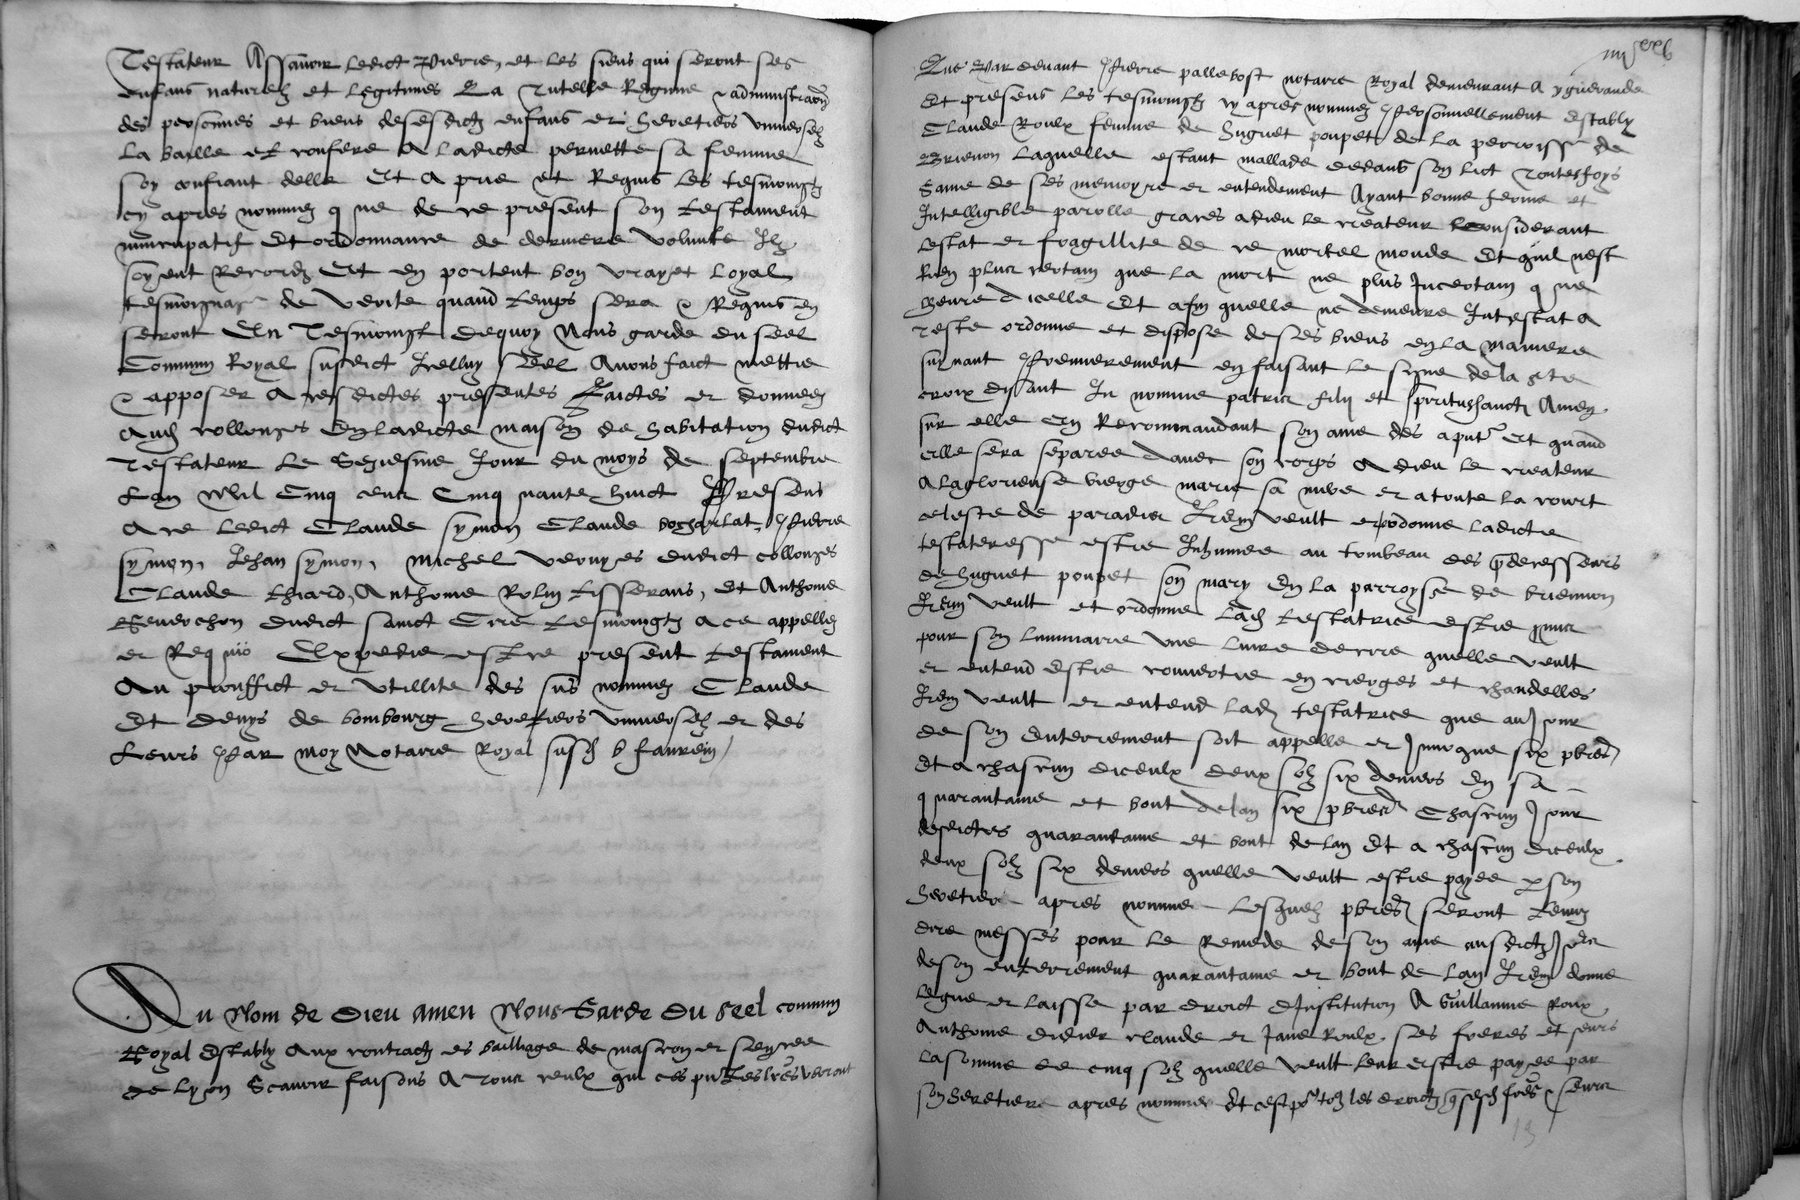 Testateur Assavoir ledict Pierre, et les siens qui seront ses
enfans naturelz et legitimes La Tutelle Regime & administraõn
des personnes et biens desesdictz enfans et heretiers universelz
la baille et confere A ladicte pernette sa femme
soy confiant delle Et a prie et Requis les tesmoingtz
cy apres nommez q ne de ce present son testament
nuncupatif et ordonnance de derniere volunte Ilz
soyent Recordz Et en portent bon vray et loyal
tesmoignaige de verite quand temps sera & Requis en
seront En Tesmoingt dequoy Nous garde du seel
Commun Royal susdict Icelluy seel Avons faict mettre
& apposer A cesdictes presentes Faictes et donnees
Aud collonges En ladicte maison de habitation dudict
Testateur le seziesme Jour du moys de septembre
Lan Mhil Cinq cens Cinq uante huict Presens
A ce ledict Claude symon Claude bocharlat, Pierre
symon, Jehan symon, michel vernyes dudict collonges
Claude thiard, Anthoine Rolin tisserans, et Anthoine
Genevchon dudict sainct Cire tesmoingtz a ce appellez
et Requis Expedie estre present testament
Au prouffict et utillite des sus nommez Claude
Et denys de bombourg heretiers universelz et des
leurs Par moy Notaire Royal sussd b faurein
Au Nom de Dieu Amen Nous Garde Du seel commun
Royal Estably Aux contractz es bailliage de mascon et seneschee
de Lyon Scavoir faisons A Tous ceulx qui ces pñtes lrẽs verront
Que Par devant Pierre pallebost notaire Royal demeurant A yguerande
Et presens les tesmoingtz cy apres nommez Personnellement Estably
Claude Roulx femme de huguet poupet de la perroisse de
Brienon Laquelle estant mallade dedans son lict Toutesfoys
Saine de ses memoyre et entendement Ayant bonne ferme et
Intelligible parolle graces a dieu le createur Considerant
lestat et fragillite de ce mortel monde Et quil nest
Rien plus certain que la mort ne plus Incertain q ne
lheure dicelle Et afin quelle ne demeure Intestat A
Teste ordonne et dispose de ses biens en la maniere
suyvant Premierement en faisant le signe de la ste
croix disant In nomine patris filij et spiritussancti Amen
sur elle En Recommandant son ame des aput Et quand
elle sera separee davec son corps A dieu le createur
A laglorieuse vierge marie sa mere et a toute la court
celeste de paradis Item veult et ordonne ladicte
testateresse estre Inhumee au tombeau des predecesseurs
de huguet poupet son mary En la parroysse de briennon
Item veult et ordonne Lad testatrice estre
pour son luminaire Une livre de cire quelle veult
et entend Estre convertie en cierges et chandelles
Item veult et entend lad testatrice que au Jour
de son Enterrement soit appelle et Invoque six pbrẽs
Et a chascun diceulx deux solz six deniers En sa
quarantaine et bout de lan six pbrẽs Chascun Jour
desdictes quarantaine et bout de lan Et a chascun diceulx
deux solz six deniers quelle veult estre payee par son
heretiere apres nommee Lesquelz pbrẽs seront tenuz
dire messes pour le Remede de son ame ausdictz Jours
de son enterrement quarantaine et bout de lan Item donne
legue et laisse par droict dInstitution A Guillaume Roux
Anthoine didier claude et Jane Roulx ses freres et seurs
La somme de cinq solz quelle veult leur estre payee par
son heretiere apres nommee Et ce pour toz les droictz q sesd freres & seurs